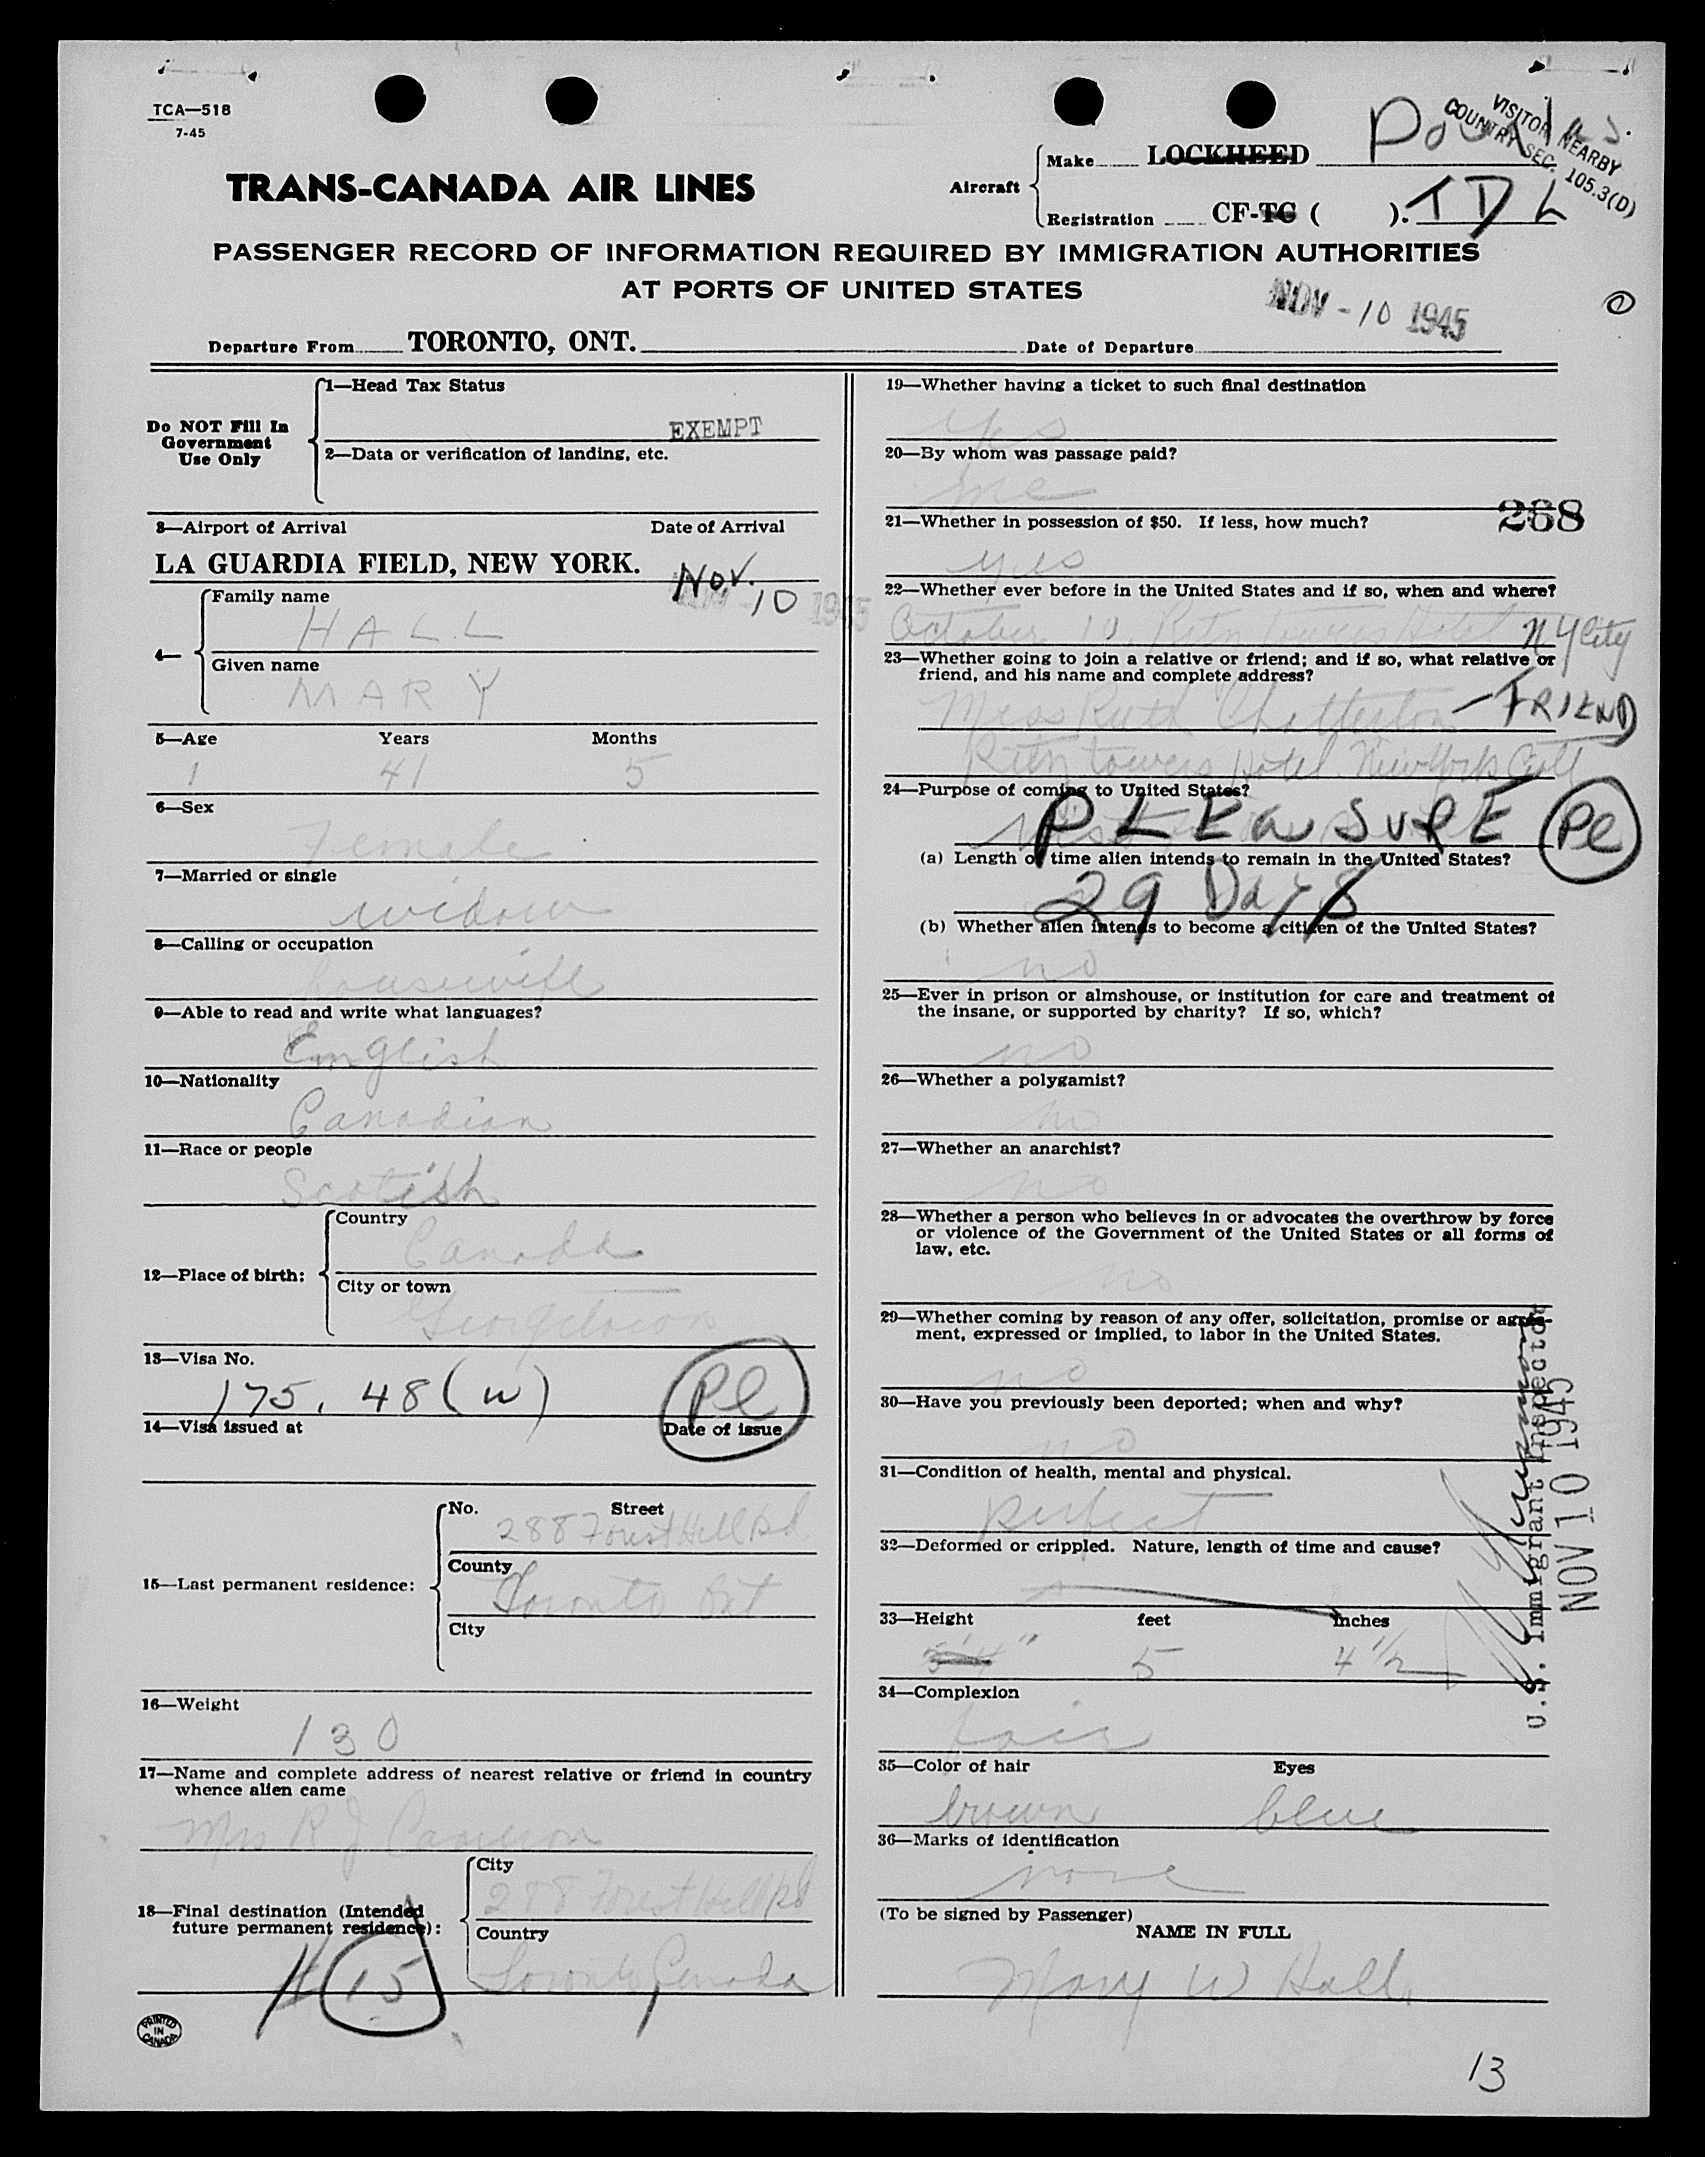 TCA—518
7-45
VISITOR NEARBY
COUNTRY SEC. 105.3(D)
TRANS-CANADA AIR LINES
Aircraft
Make LOCKHEED Douglas.
Registration CF-TG ( ). TDL
PASSENGER RECORD OF INFORMATION REQUIRED BY IMMIGRATION AUTHORITIES
AT PORTS OF UNITED STATES
NOV - 10 1945
Departure From TORONTO, ONT. Date of Departure
Do NOT Fill In
Government
Use Only
1—Head Tax Status
EXEMPT
2—Data or verification of landing, etc.
3—Airport of Arrival Date of Arrival
LA GUARDIA FIELD, NEW YORK. Nov. 10 1945
4—
Family name
HALL
Given name
MARY
5—Age Years Months
1 41 5
6—Sex
Female
7—Married or single
widow
8—Calling or occupation
housewife
9—Able to read and write what languages?
English
10—Nationality
Canadian
11—Race or people
Scotish
12—Place of birth:
Country
Canada
City or town
Georgetown
13—Visa No.
175.48 (w) Pl
14—Visa issued at Date of issue
15—Last permanent residence:
No. Street
288 Forest Hill Rd
County
Toronto Ont
City
16—Weight
130
17—Name and complete address of nearest relative or friend in country
whence alien came
Mrs R J Cameron
18—Final destination (Intended
future permanent residence):
City
288 Forest Hill Rd
Country
Toronto Canada
15
PRINTED
IN
CANADA
19—Whether having a ticket to such final destination
Yes
20—By whom was passage paid?
me
268
21—Whether in possession of $50. If less, how much?
yes
22—Whether ever before in the United States and if so, when and where?
October 10, Ritz Towers Hotel N Y City
23—Whether going to join a relative or friend; and if so, what relative or
friend, and his name and complete address?
Miss Ruth Chatterton — FRIEND
Ritz towers Hotel New York
24—Purpose of coming to United States?
PLEASURE Pl
(a) Length of time alien intends to remain in the United States?
29 Days
(b) Whether alien intends to become a citizen of the United States?
no
25—Ever in prison or almshouse, or institution for care and treatment of
the insane, or supported by charity? If so, which?
no
26—Whether a polygamist?
no
27—Whether an anarchist?
no
28—Whether a person who believes in or advocates the overthrow by force
or violence of the Government of the United States or all forms of
law, etc.
no
29—Whether coming by reason of any offer, solicitation, promise or agree-
ment, expressed or implied, to labor in the United States.
no
30—Have you previously been deported; when and why?
no
31—Condition of health, mental and physical.
perfect
32—Deformed or crippled. Nature, length of time and cause?
33—Height feet inches
5'4" 5 4 1/2
34—Complexion
fair
35—Color of hair Eyes
brown blue
36—Marks of identification
none
(To be signed by Passenger)
NAME IN FULL
Mary W Hall
U.S. Immigrant Inspector
NOV 10 1945
13